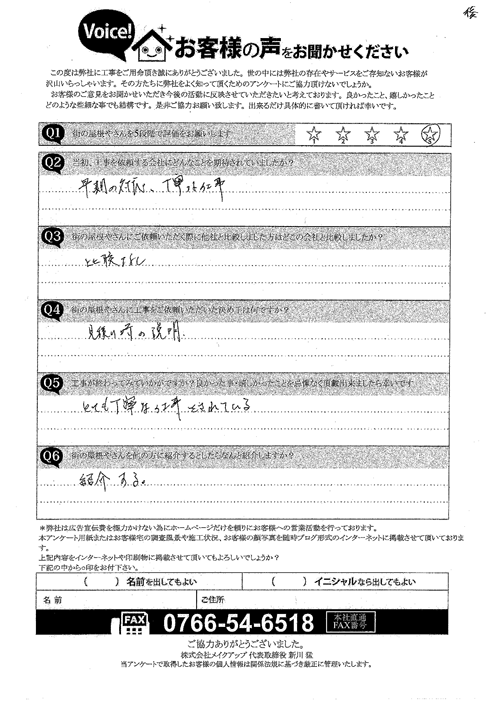 後
Voice!
お客様の声をお聞かせください
この度は弊社に工事をご用命頂き誠にありがとうございました。世の中には弊社の存在やサービスをご存知ないお客様が
沢山いらっしゃいます。その方たちに弊社をよく知って頂くためのアンケートにご協力頂けないでしょうか。
お客様のご意見をお聞かせいただき今後の活動に反映させていただきたいと考えております。良かったこと、嬉しかったこと
どのような些細な事でも結構です。是非ご協力お願い致します。出来るだけ具体的に書いて頂ければ幸いです。
Q1 街の屋根やさんを5段階で評価をお願いします 1 2 3 4 5
Q2 当初、工事を依頼する会社にどんなことを期待されていましたか？
早期の対応、丁寧な仕事
Q3 街の屋根やさんにご依頼いただく際に他社と比較しました方はどこの会社と比較しましたか？
比較なし
Q4 街の屋根やさんに工事をご依頼いただいた決め手は何ですか？
見積り時の説明
Q5 工事が終わってみていかがですか？良かった事・嬉しかったことを忌憚なく頂戴出来ましたら幸いです
とても丁寧な仕事をされている
Q6 街の屋根やさんを他の方に紹介するとしたらなんと紹介しますか？
紹介する。
＊弊社は広告宣伝費を極力かけない為にホームページだけを頼りにお客様への営業活動を行っております。
本アンケート用紙またはお客様宅の調査風景や施工状況、お客様の顔写真を随時ブログ形式のインターネットに掲載させて頂いておりま
す。
上記内容をインターネットや印刷物に掲載させて頂いてもよろしいでしょうか？
下記の中から○印をお付下さい。
（　　）名前を出してもよい （　　）イニシャルなら出してもよい
名前 ご住所
FAX 0766-54-6518 本社直通 FAX番号
ご協力ありがとうございました。
株式会社メイクアップ 代表取締役 新川 猛
当アンケートで取得したお客様の個人情報は関係法規に基づき厳正に管理いたします。